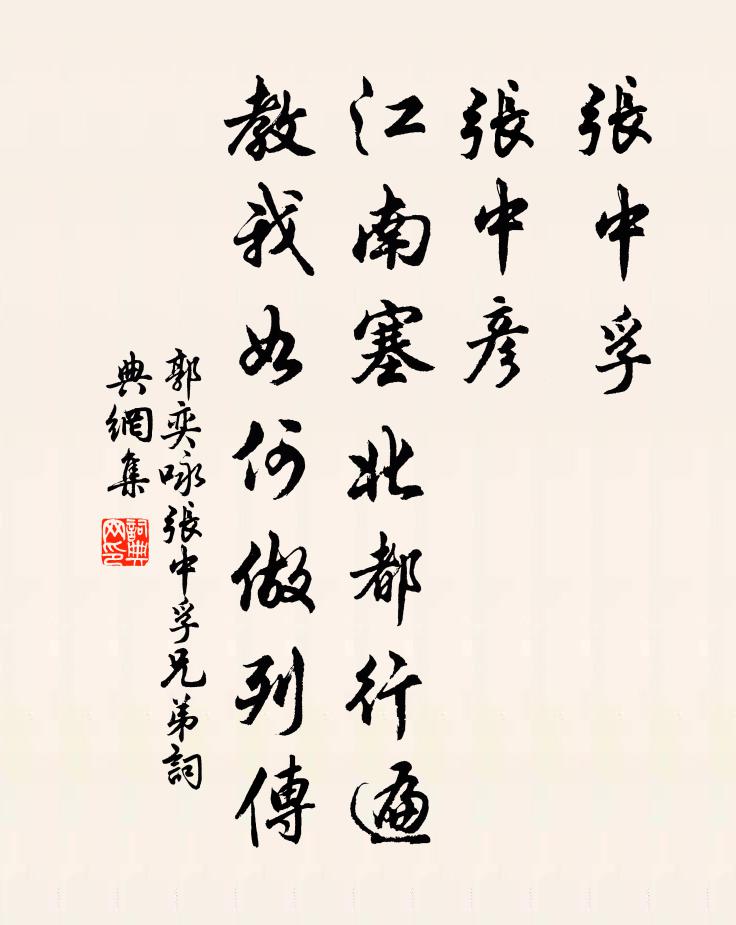 張中孚
張中彥
江南塞北都行遍
教我如何做列傳
郭奕咏張中孚兄弟詞
典網集
詞典
网印